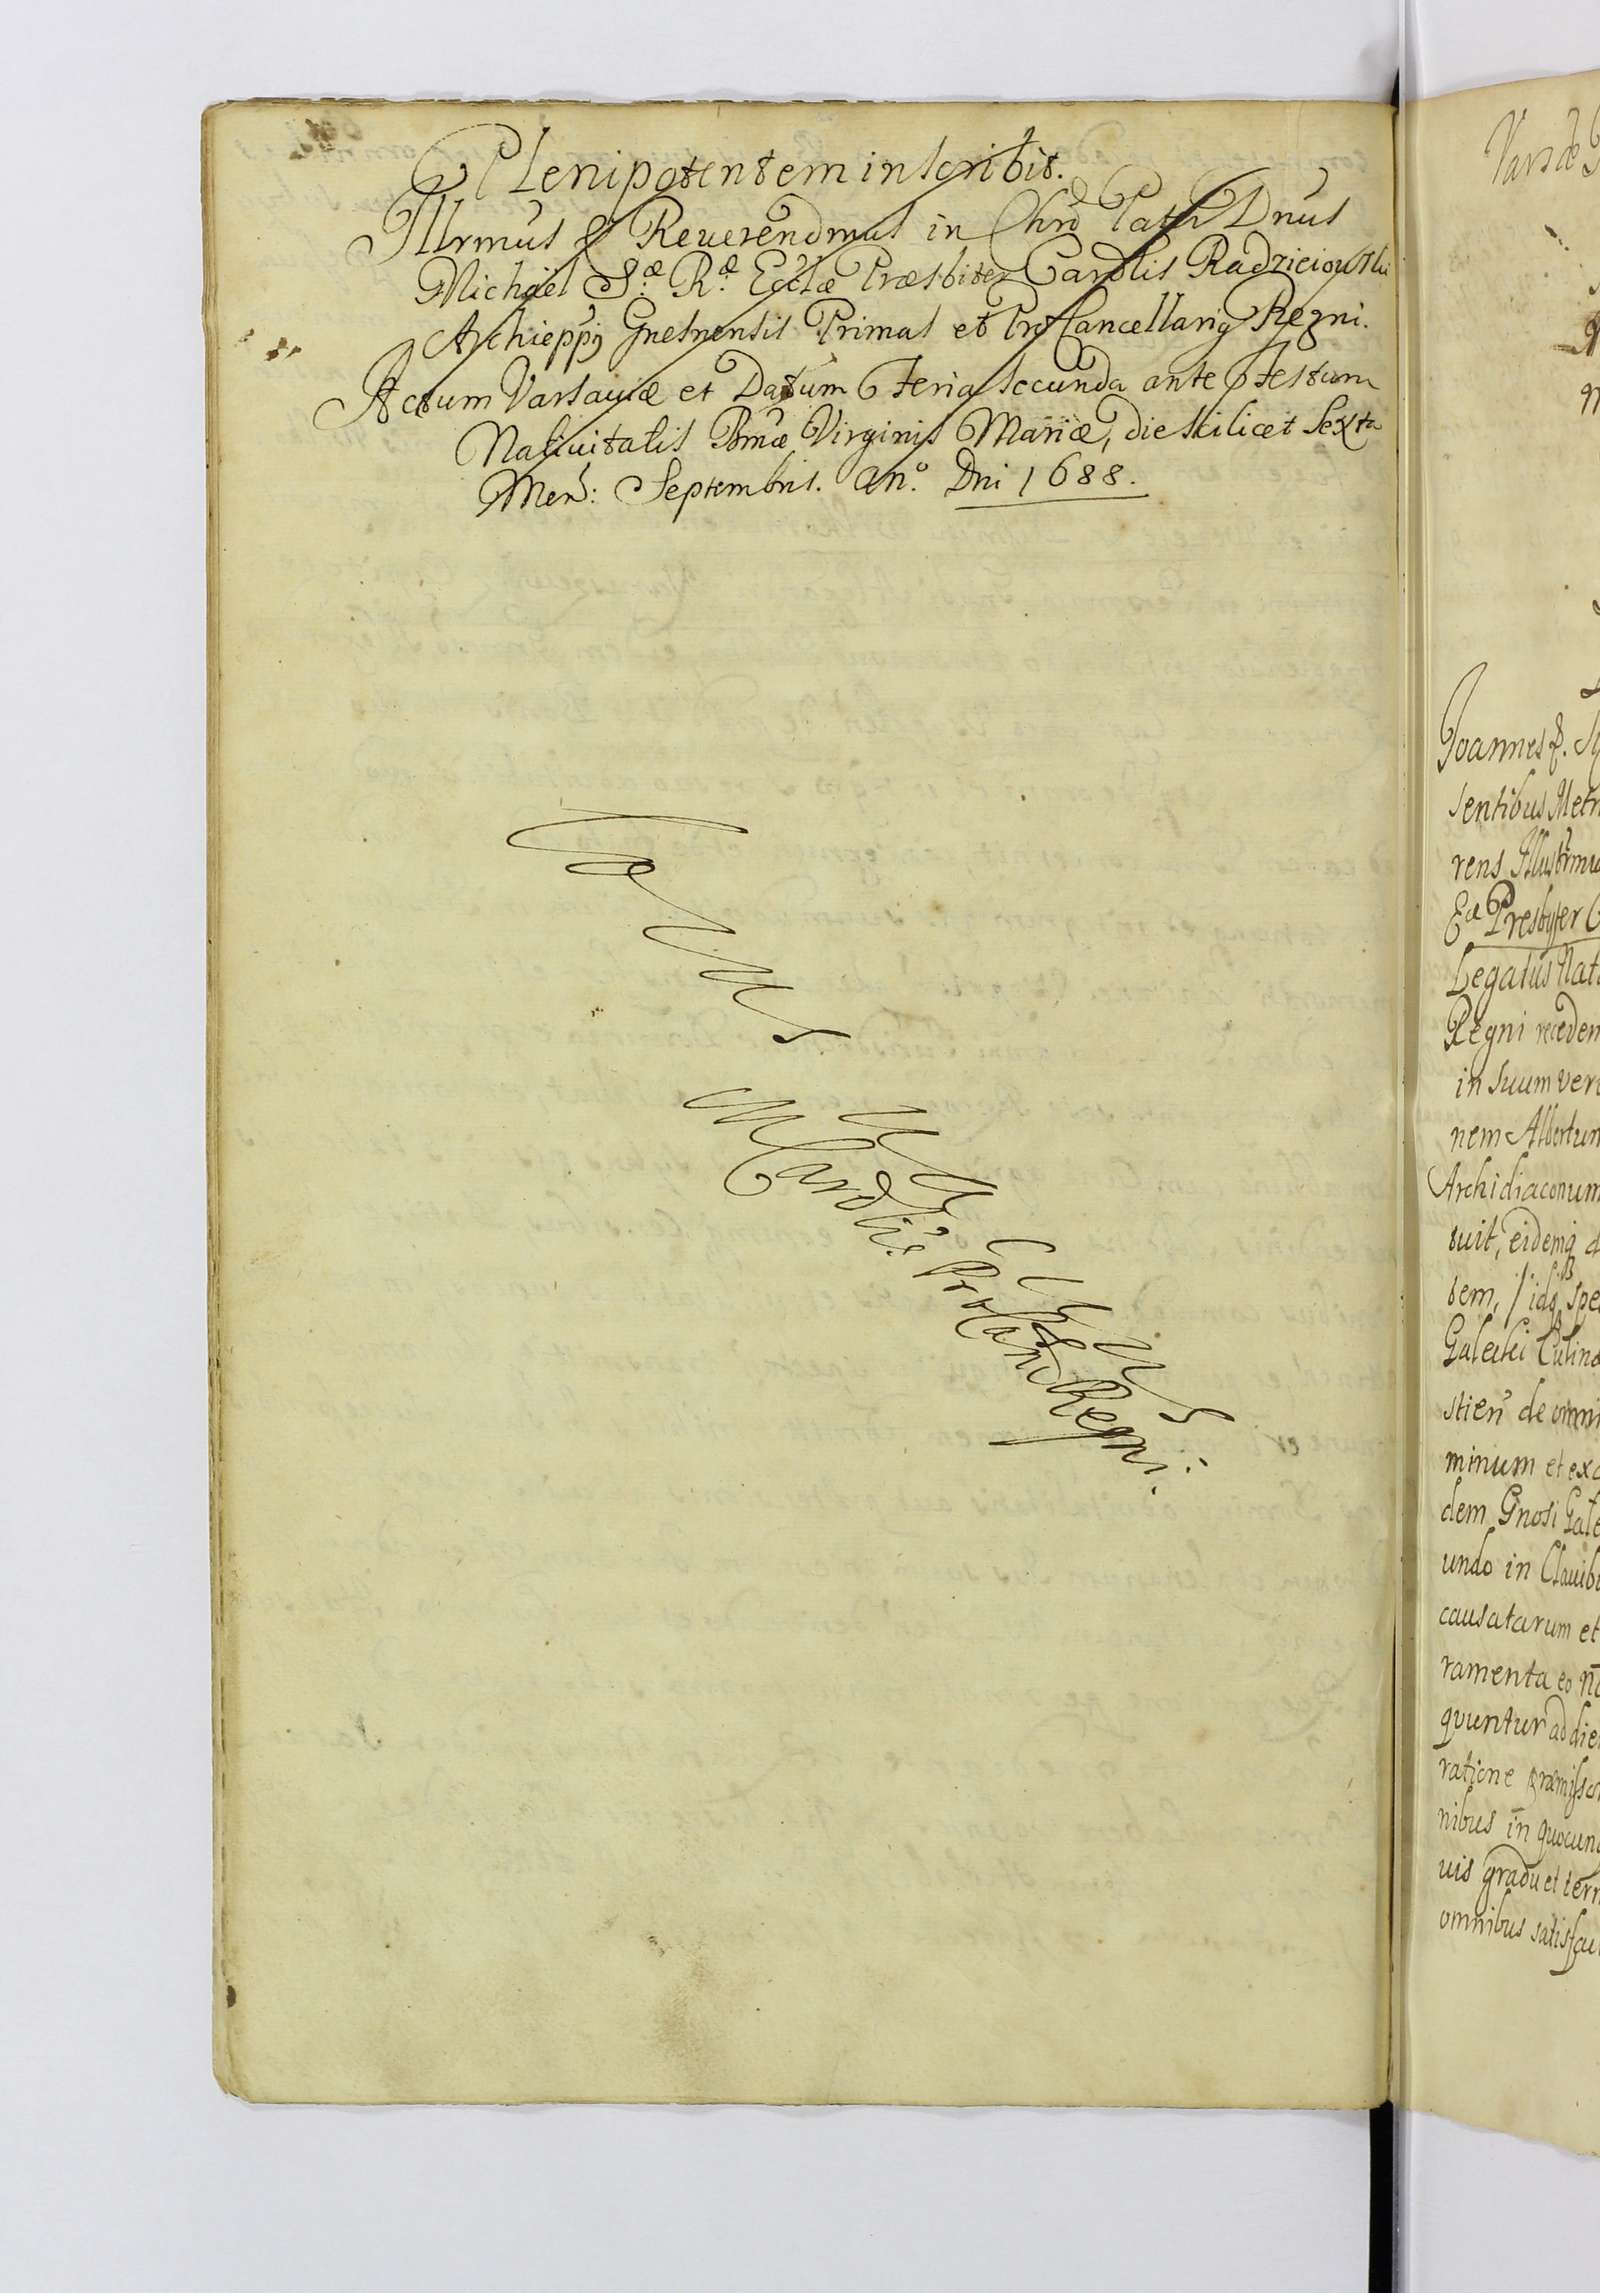 Plenipotentem inscribit.
Illrmus & Reuerendmus in Chrō Patr Dnūs
Michael S.æ R.æ Ecclæ Præsbiter Cardlis Radzieiowski
Archieppȳ Gnesnensis Primas et ProCancellariȝ Regni.
Actum Varsauiæ et Datum Feria secunda ante Festum
Natiuitatis Bmæ Virginis Mariæ, die scilicet Sexta
Men: Septembris. An.° Dni 1688.
Vacuus
M Cardlis ProCanc Regni.
Varsæ
Joannes
sentibus Metr
rens Illustrmu
Eæ Presbyter C
Legatus Nat
Regni receden
in suum ver
nem Albertum
Archidiaconum
tuit, eidemq
tem, / idq spe
Galecki
stien de omni
minum et exc
dem Gnosi Gale
undo in Clauib
causatarum et
ramenta eo
quuntur ad die
ratione præmisso
nibus in quocun
uis gradu et term
omnibus satisfac